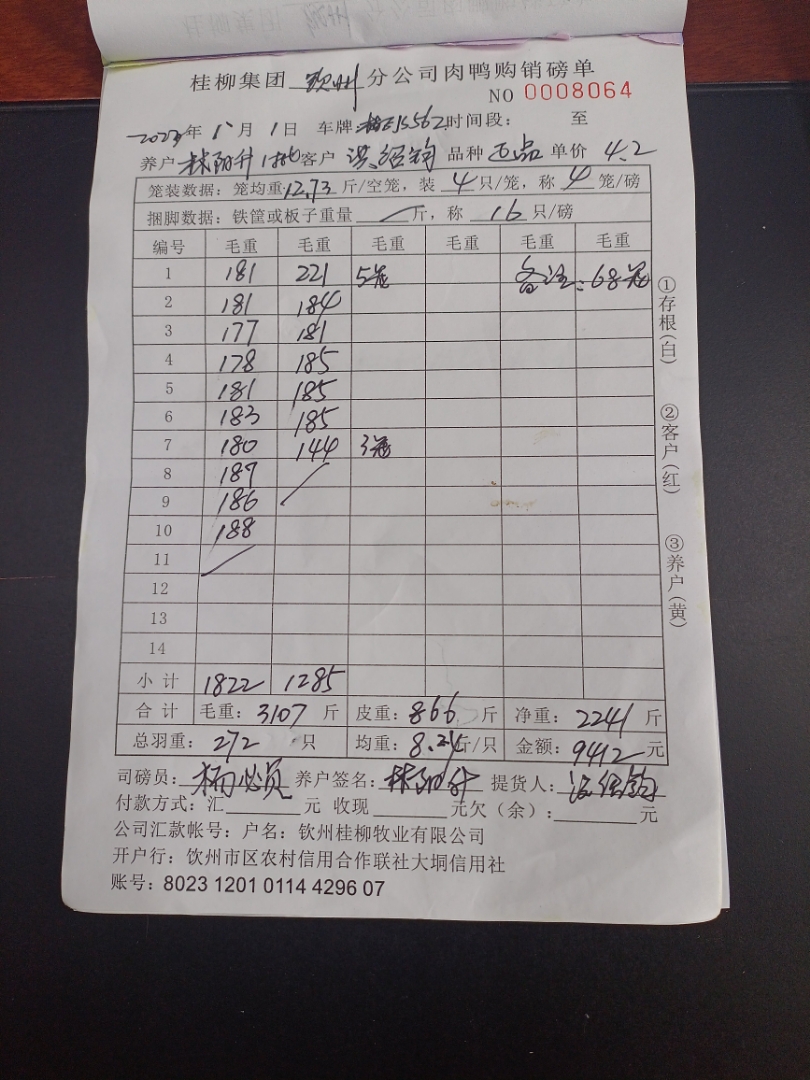 桂柳集团 钦州 分公司肉鸭购销磅单
NO 0008064
2023年 1月 1日 车牌: 15562 时间段: 至
养户 林阳升 客户 洪绍钧 品种 正品 单价 4.2
笼装数据: 笼均重 12.73 斤/空笼, 装 4 只/笼, 称 4 笼/磅
捆脚数据: 铁筐或板子重量 斤, 称 16 只/磅
编号 毛重 毛重 毛重 毛重 毛重 毛重
1 181 221 5笼 备注: 68笼
2 181 184
3 177 181
4 178 185
5 181 185
6 183 185
7 180 144 3笼
8 187
9 186
10 188
11
12
13
14
小计 1822 1285
合计 毛重: 3107 斤 皮重: 866 斤 净重: 2241 斤
总羽重: 272 只 均重: 8.24 斤/只 金额: 9412 元
司磅员: 养户签名: 林阳升 提货人: 洪绍钧
付款方式: 汇 元 收现 元欠(余): 元
公司汇款帐号: 户名: 钦州桂柳牧业有限公司
开户行: 钦州市区农村信用合作联社大垌信用社
账号: 8023 1201 0114 4296 07
①存根(白)
②客户(红)
③养户(黄)